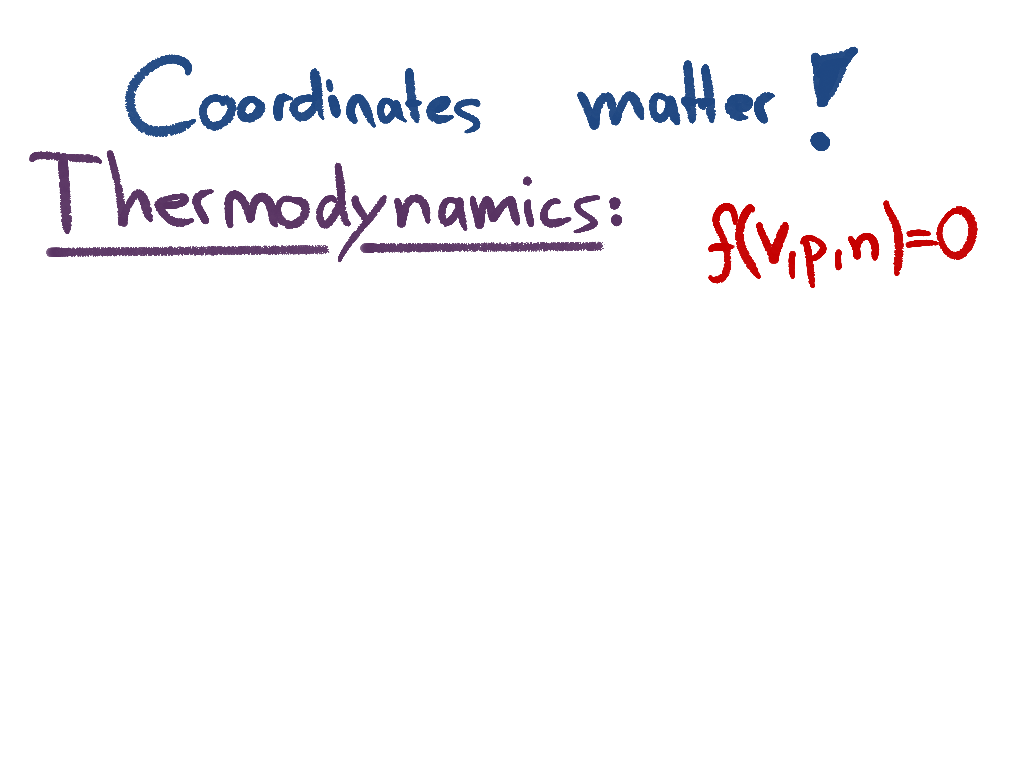 Coordinates matter!
Thermodynamics:
f(V,p,n)=0